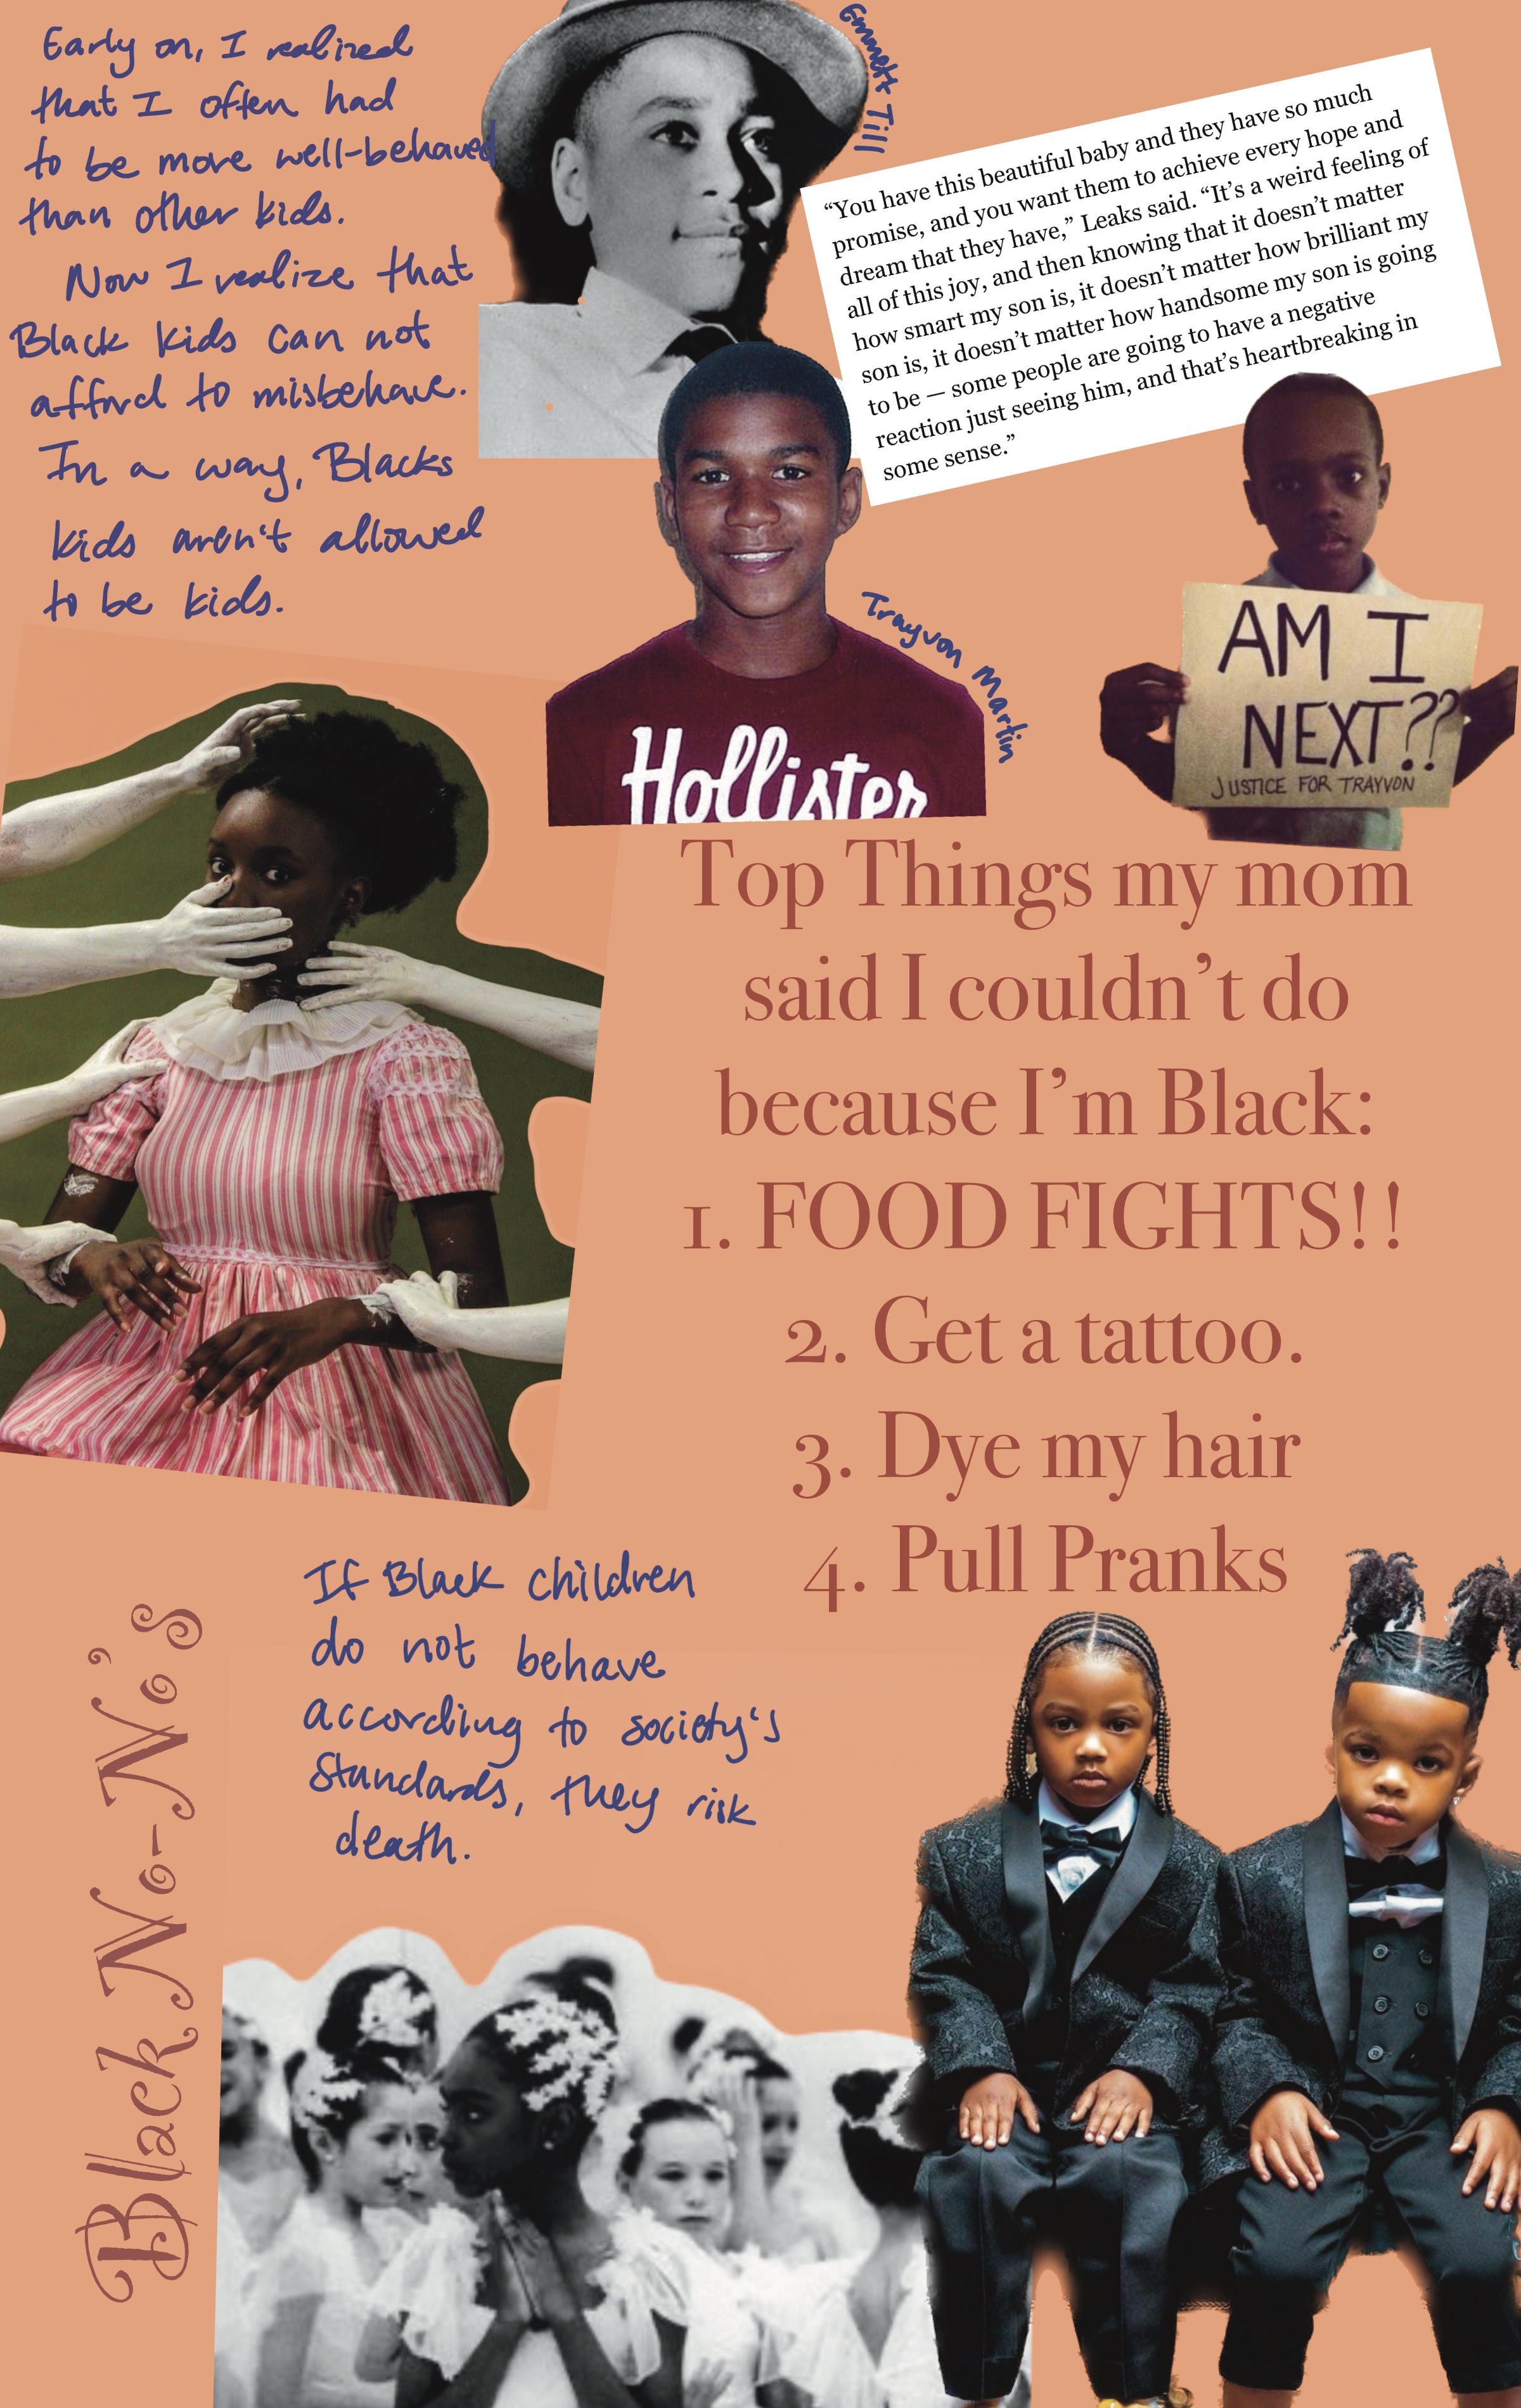 Early on, I realized
that I often had
to be more well-behaved
than other kids.
Now I realize that
Black kids can not
afford to misbehave.
In a way, Blacks
kids aren't allowed
to be kids.
Emmett Till
“You have this beautiful baby and they have so much
promise, and you want them to achieve every hope and
dream that they have,” Leaks said. “It’s a weird feeling of
all of this joy, and then knowing that it doesn’t matter
how smart my son is, it doesn’t matter how brilliant my
son is, it doesn’t matter how handsome my son is going
to be — some people are going to have a negative
reaction just seeing him, and that’s heartbreaking in
some sense.”
Trayvon Martin
Hollister
AM I
NEXT??
JUSTICE FOR TRAYVON
Top Things my mom
said I couldn’t do
because I’m Black:
1. FOOD FIGHTS!!
2. Get a tattoo.
3. Dye my hair
4. Pull Pranks
If Black children
do not behave
according to society's
standards, they risk
death.
Black No-No’s